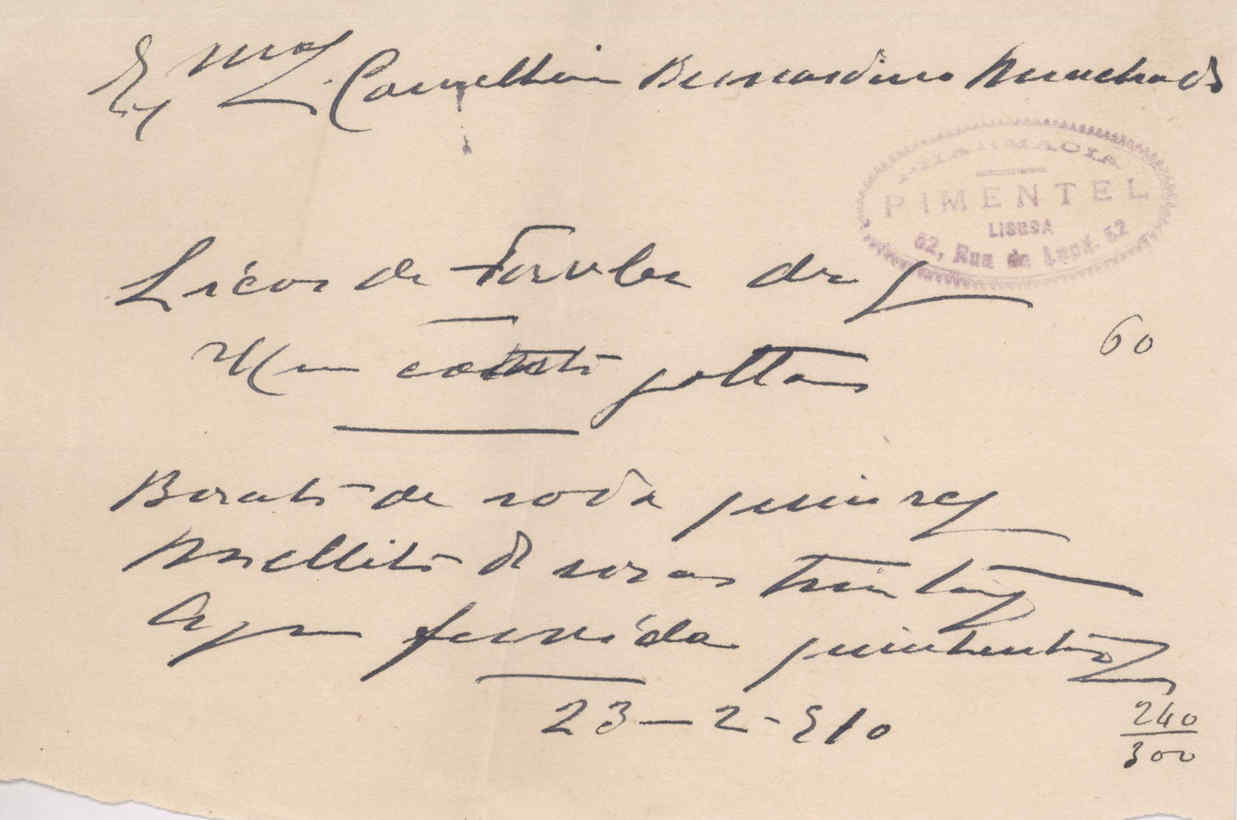 Exmo Conselheiro Bernardino Machado
PHARMACIA
PIMENTEL
LISBOA
52, Rua de 52
Licor de Fowler dez g
60
Um conta gottas
Borato de soda quinze g
Mellito de rosas trinta g
Agua fervida quinhentos g
23-2-910
240
300